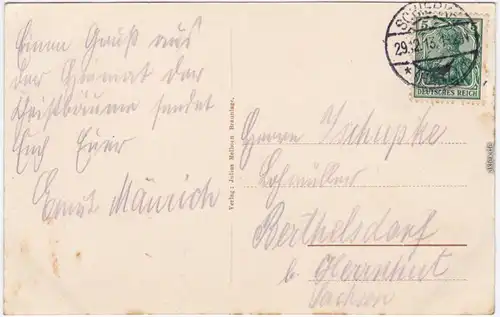 Einen Gruß aus
der Heimat der
Christbäume sendet
Euch Euer
Ernst Mäurich
Verlag: Julius Meilson Braunlage.
SCHIERKE
29.12.13.
DEUTSCHES REICH
Herrn Zschupke
Berthelsdorf
b. Herrnhut
Sachsen